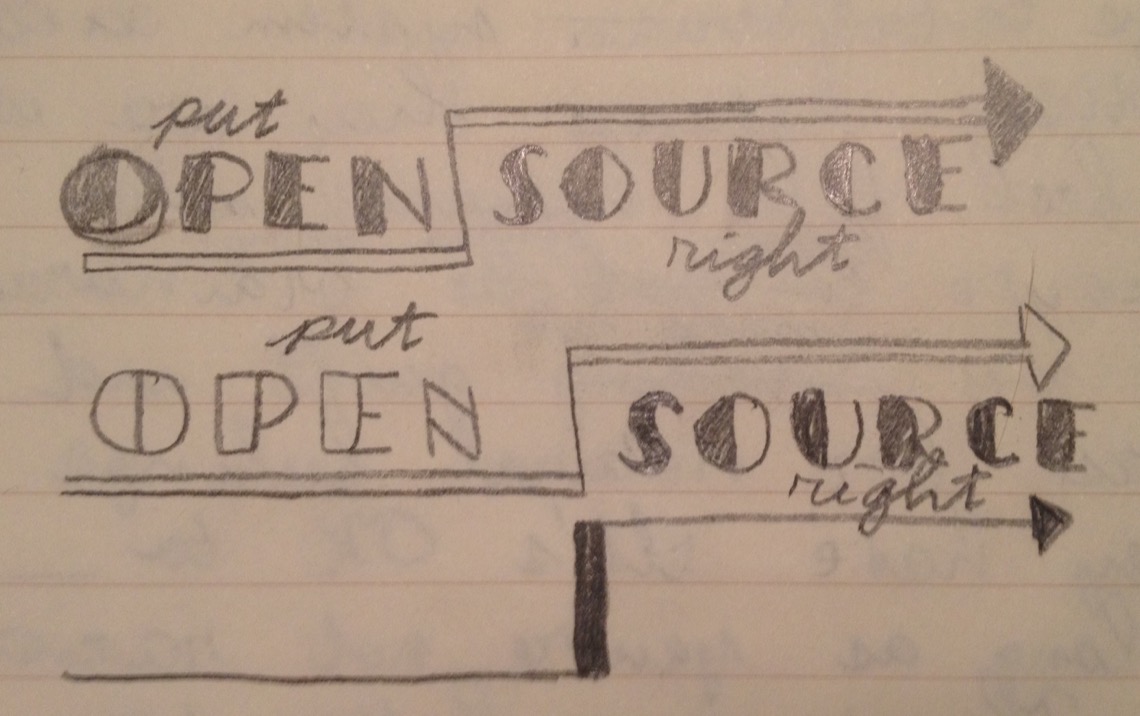 put
OPEN SOURCE
right
put
OPEN SOURCE
right